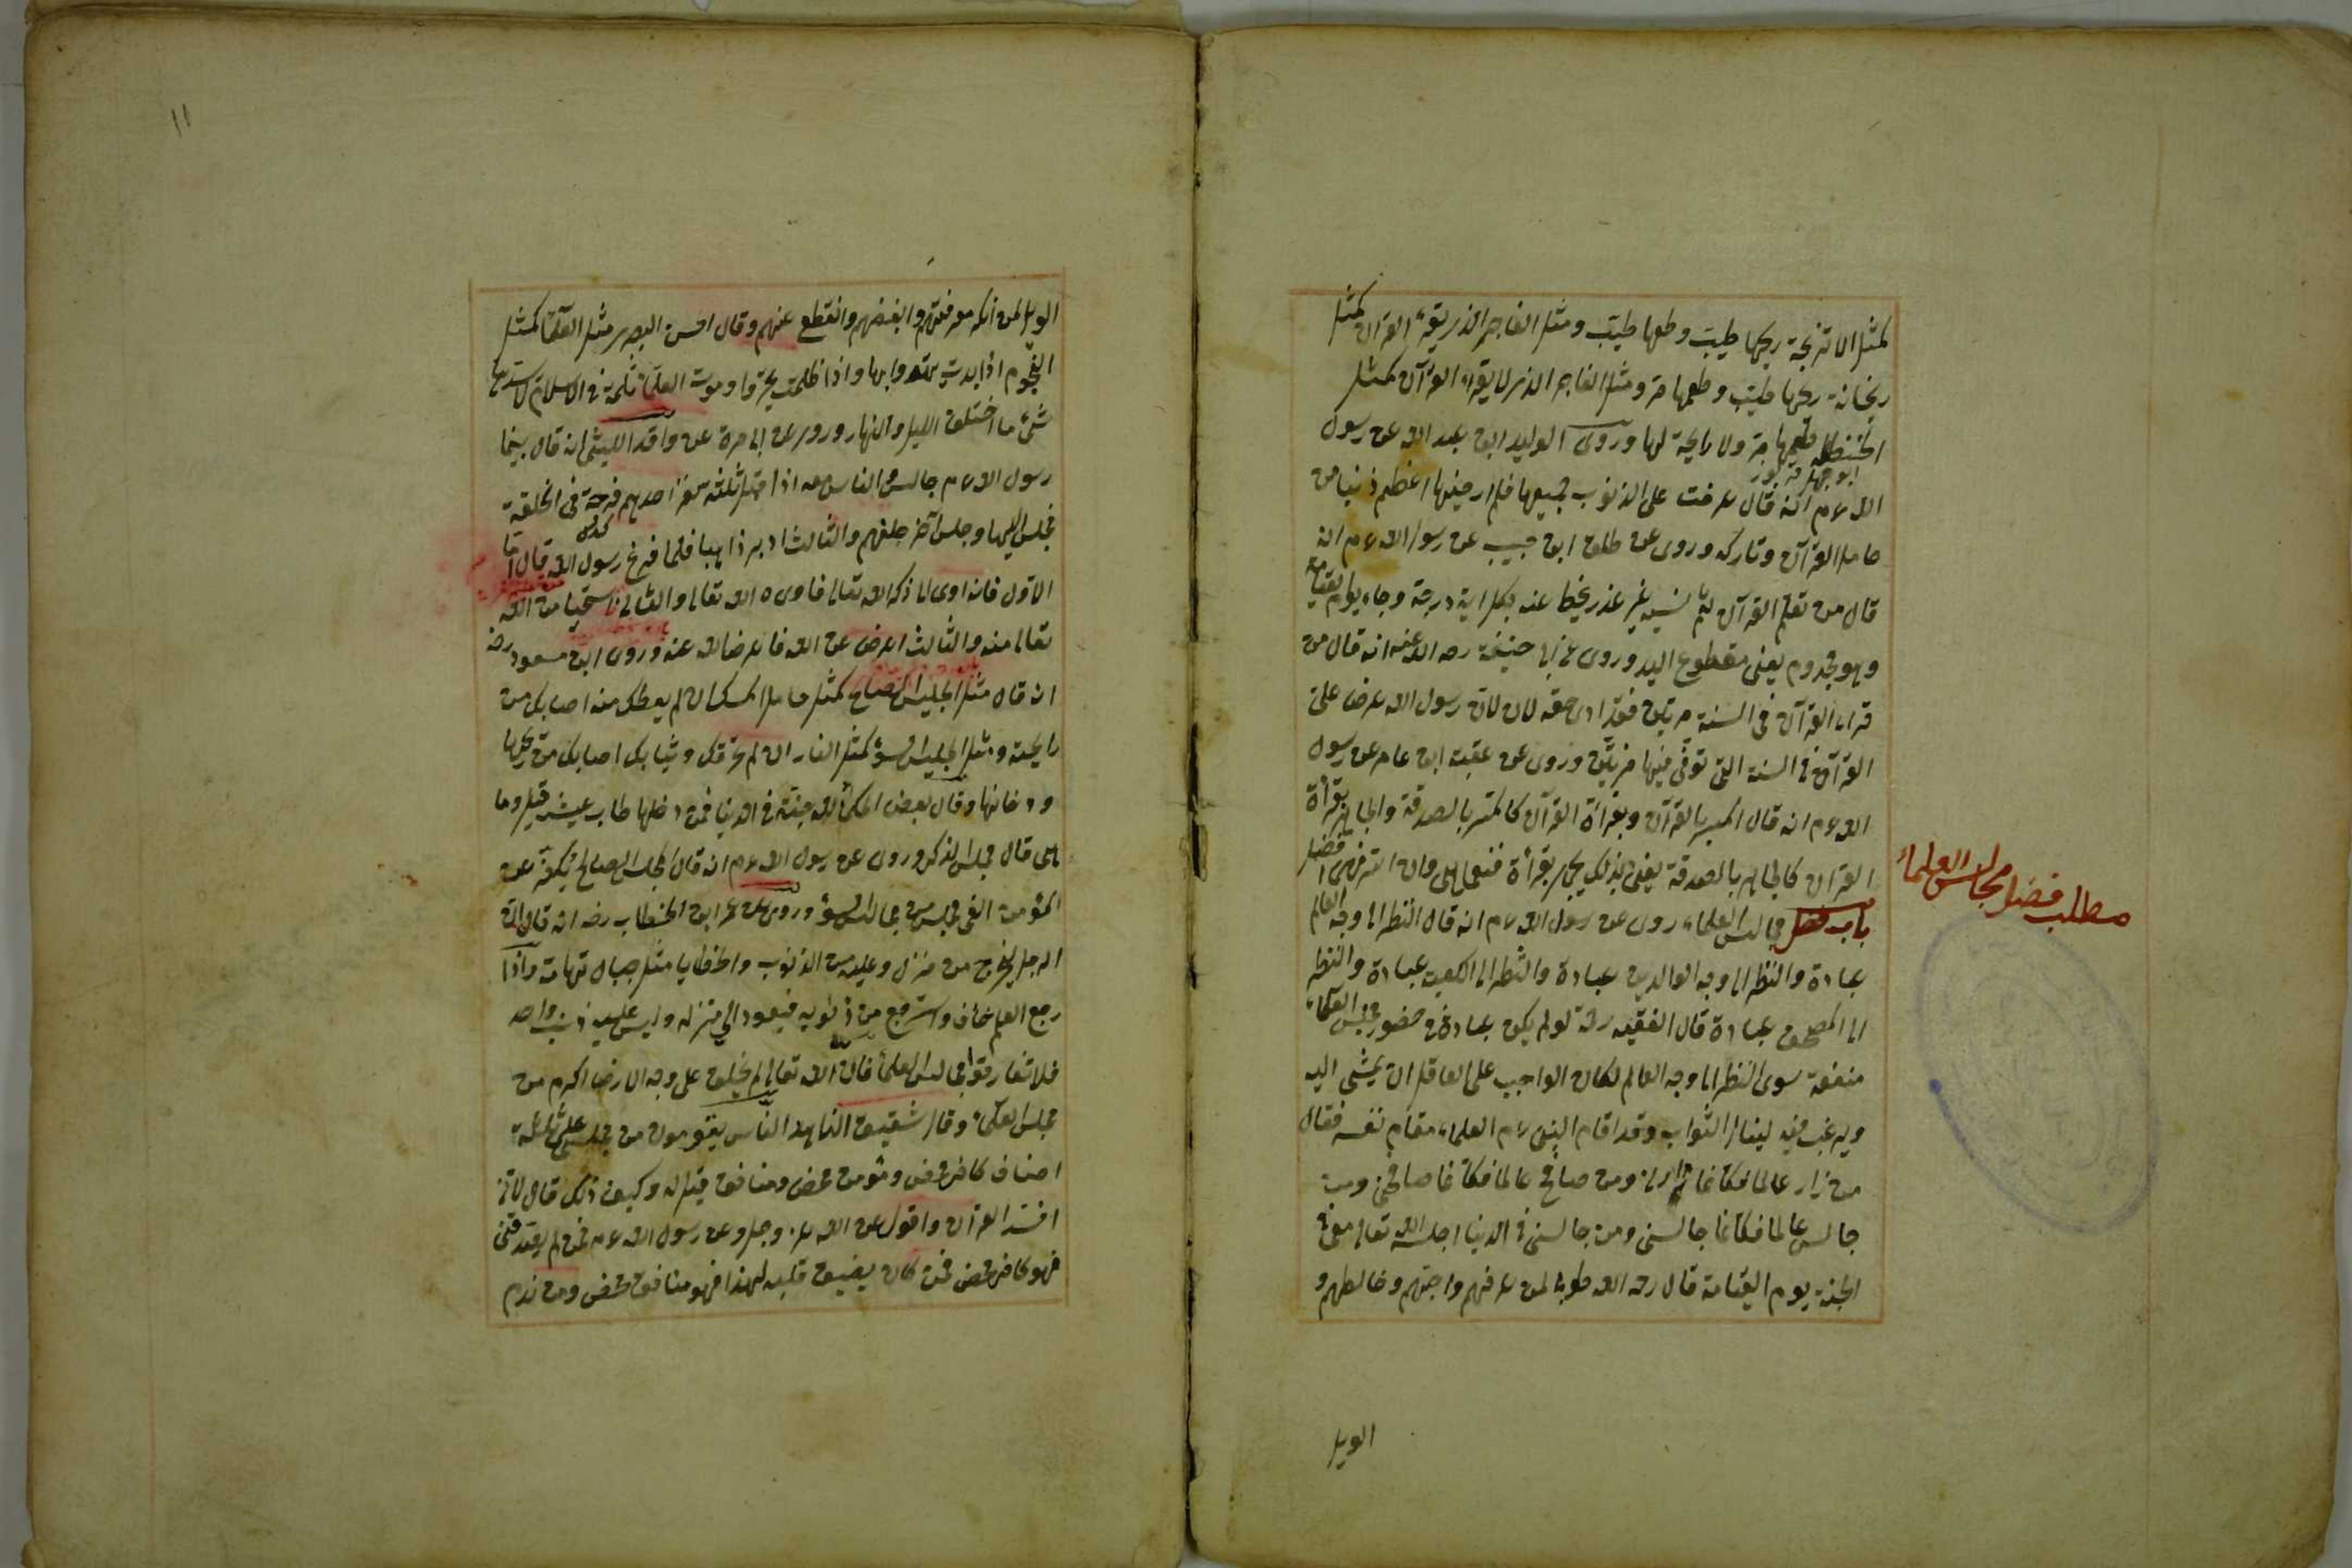 كمثل الاترنجة ريحها طيب وطعها طيب ومثل الفاجر الذى يقرء القرآن كمثل
ريحانة ريحها طيب وطعمها مر ومثل الفاجر الذى لا يقرء القرآن كمثل
الحنظلة طعمها مر ولا رايحة لها وروى الوليد ابن عبد الله عن رسول
الله عم انه قال عرضت على الذنوب جميعها فلم ار فيها اعظم ذنبا من
حامل القرآن وتاركه وروى عن طلق ابن حبيب عن رسول الله عم انه
قال من تعلم القرآن ثم نسيه بغير عذر يحط عنه بكل اية درجة وجاء يوم القيامة
وهو مجذوم يعنى مقطوع اليد وروى عن ابى حنيفة رحه الله عنه انه قال من
قراء القرآن فى السنة مرتين فقد ادى حقه لان رسول الله عرض على
القرآن فى السنة التى توفى فيها مرتين وروى عن عقبة ابن عامر عن رسول
الله عم انه قال المسر بالقرآن وبقرأة القرآن كالمسر بالصدقة والجاهر بقرأة
القرآن كالجاهر بالصدقة يعنى بذلك يجهر بقرأة فنعما هى وان اسر فهى افضل
مطلب فضل مجالس العلماء
باب فضل مجالس العلماء روى عن رسول الله عم انه قال النظر الى وجه العالم
عبادة والنظر الى وجه الوالدين عبادة والنظر الى الكعبة عبادة والنظر
الى المصحف عبادة قال الفقيه رحه لو لم يكن عبادة فى حضور مجلس العلماء
منفعة سوى النظر الى وجه العالم لكان الواجب على العاقل ان يمشى اليه
ويرغب فيه لينال الثواب وقد اقام النبى عم العلماء مقام نفسه فقال
من زار عالما فكانما زارنى ومن صافح عالما فكانما صافحنى ومن
جالس عالما فكانما جالسنى ومن جالسنى فى الدنيا اجلسه الله تعالى معى فى
الجنة يوم القيامة قال رحه الله طوبى لمن عرفهم واحبهم وخالطهم و
الويل
١١
الويل لمن انكر معرفتهم وابغضهم وانقطع عنهم وقال احسن البصرى مثل العلماء كمثل
النجوم اذا بدت اهتدوا بها واذا ظلمت تحيروا وموت العلماء ثلمة فى الاسلام لا يسدها
شئ ما اختلف الليل والنهار وروى عن ابى مرة عن واقد الليثى انه قال بينما
رسول الله عم جالس والناس معه اذا اقبل ثلثة نفر احدهم فرجة فى الحلقة
فجلس اليها وجلس آخر خلفهم والثالث ادبر ذاهبا فلما فرغ رسول الله قال اما
الاول فانه اوى الى ذكر الله تعالى فاوىه الله تعالى والثانى استحيا من الله
تعالى منه والثالث اعرض عن الله فاعرض الله عنه وروى ابن مسعود رضه
انه قال مثل الجليس الصالح كمثل حامل المسك ان لم يعطك منه اصابك من
رايحته ومثل الجليس السوء كمثل النار ان لم تحرقك وثيابك اصابك من ريحها
ودخانها وقال بعض الحكماء لله جنة فى الدنيا فمن دخلها طاب عيشه قيل وما
هى قال مجلس الذكر وروى عن رسول الله عم انه قال المجلس الصالح يكفر عن
المؤمن الفى مجلس من مجالس السوء وروى عن عمر ابن الخطاب رضه انه قال ان
الرجل ليخرج من منزله وعليه من الذنوب والخطايا مثل جبال تهامة واذا
رجع العلم خاف واسترجع من ذنوبه فيعود الى منزله وليس عليه ذنب واحد
فلا تفارقوا مجالس العلماء فان الله تعالى لم يخلق على وجه الارض اكرم من
مجلس العلماء وقال شقيق الزاهد الناس يقومون من مجلسى على ثلثة
اصناف كافر محض ومؤمن محض ومنافق قيل له وكيف ذلك قال لانى
افسر القرآن واقول عن الله عز وجل وعن رسول الله عم فمن لم يصدقنى
فهو كافر محض فمن كان يضيق قلبه لهذا فهو منافق محض ومن ندم